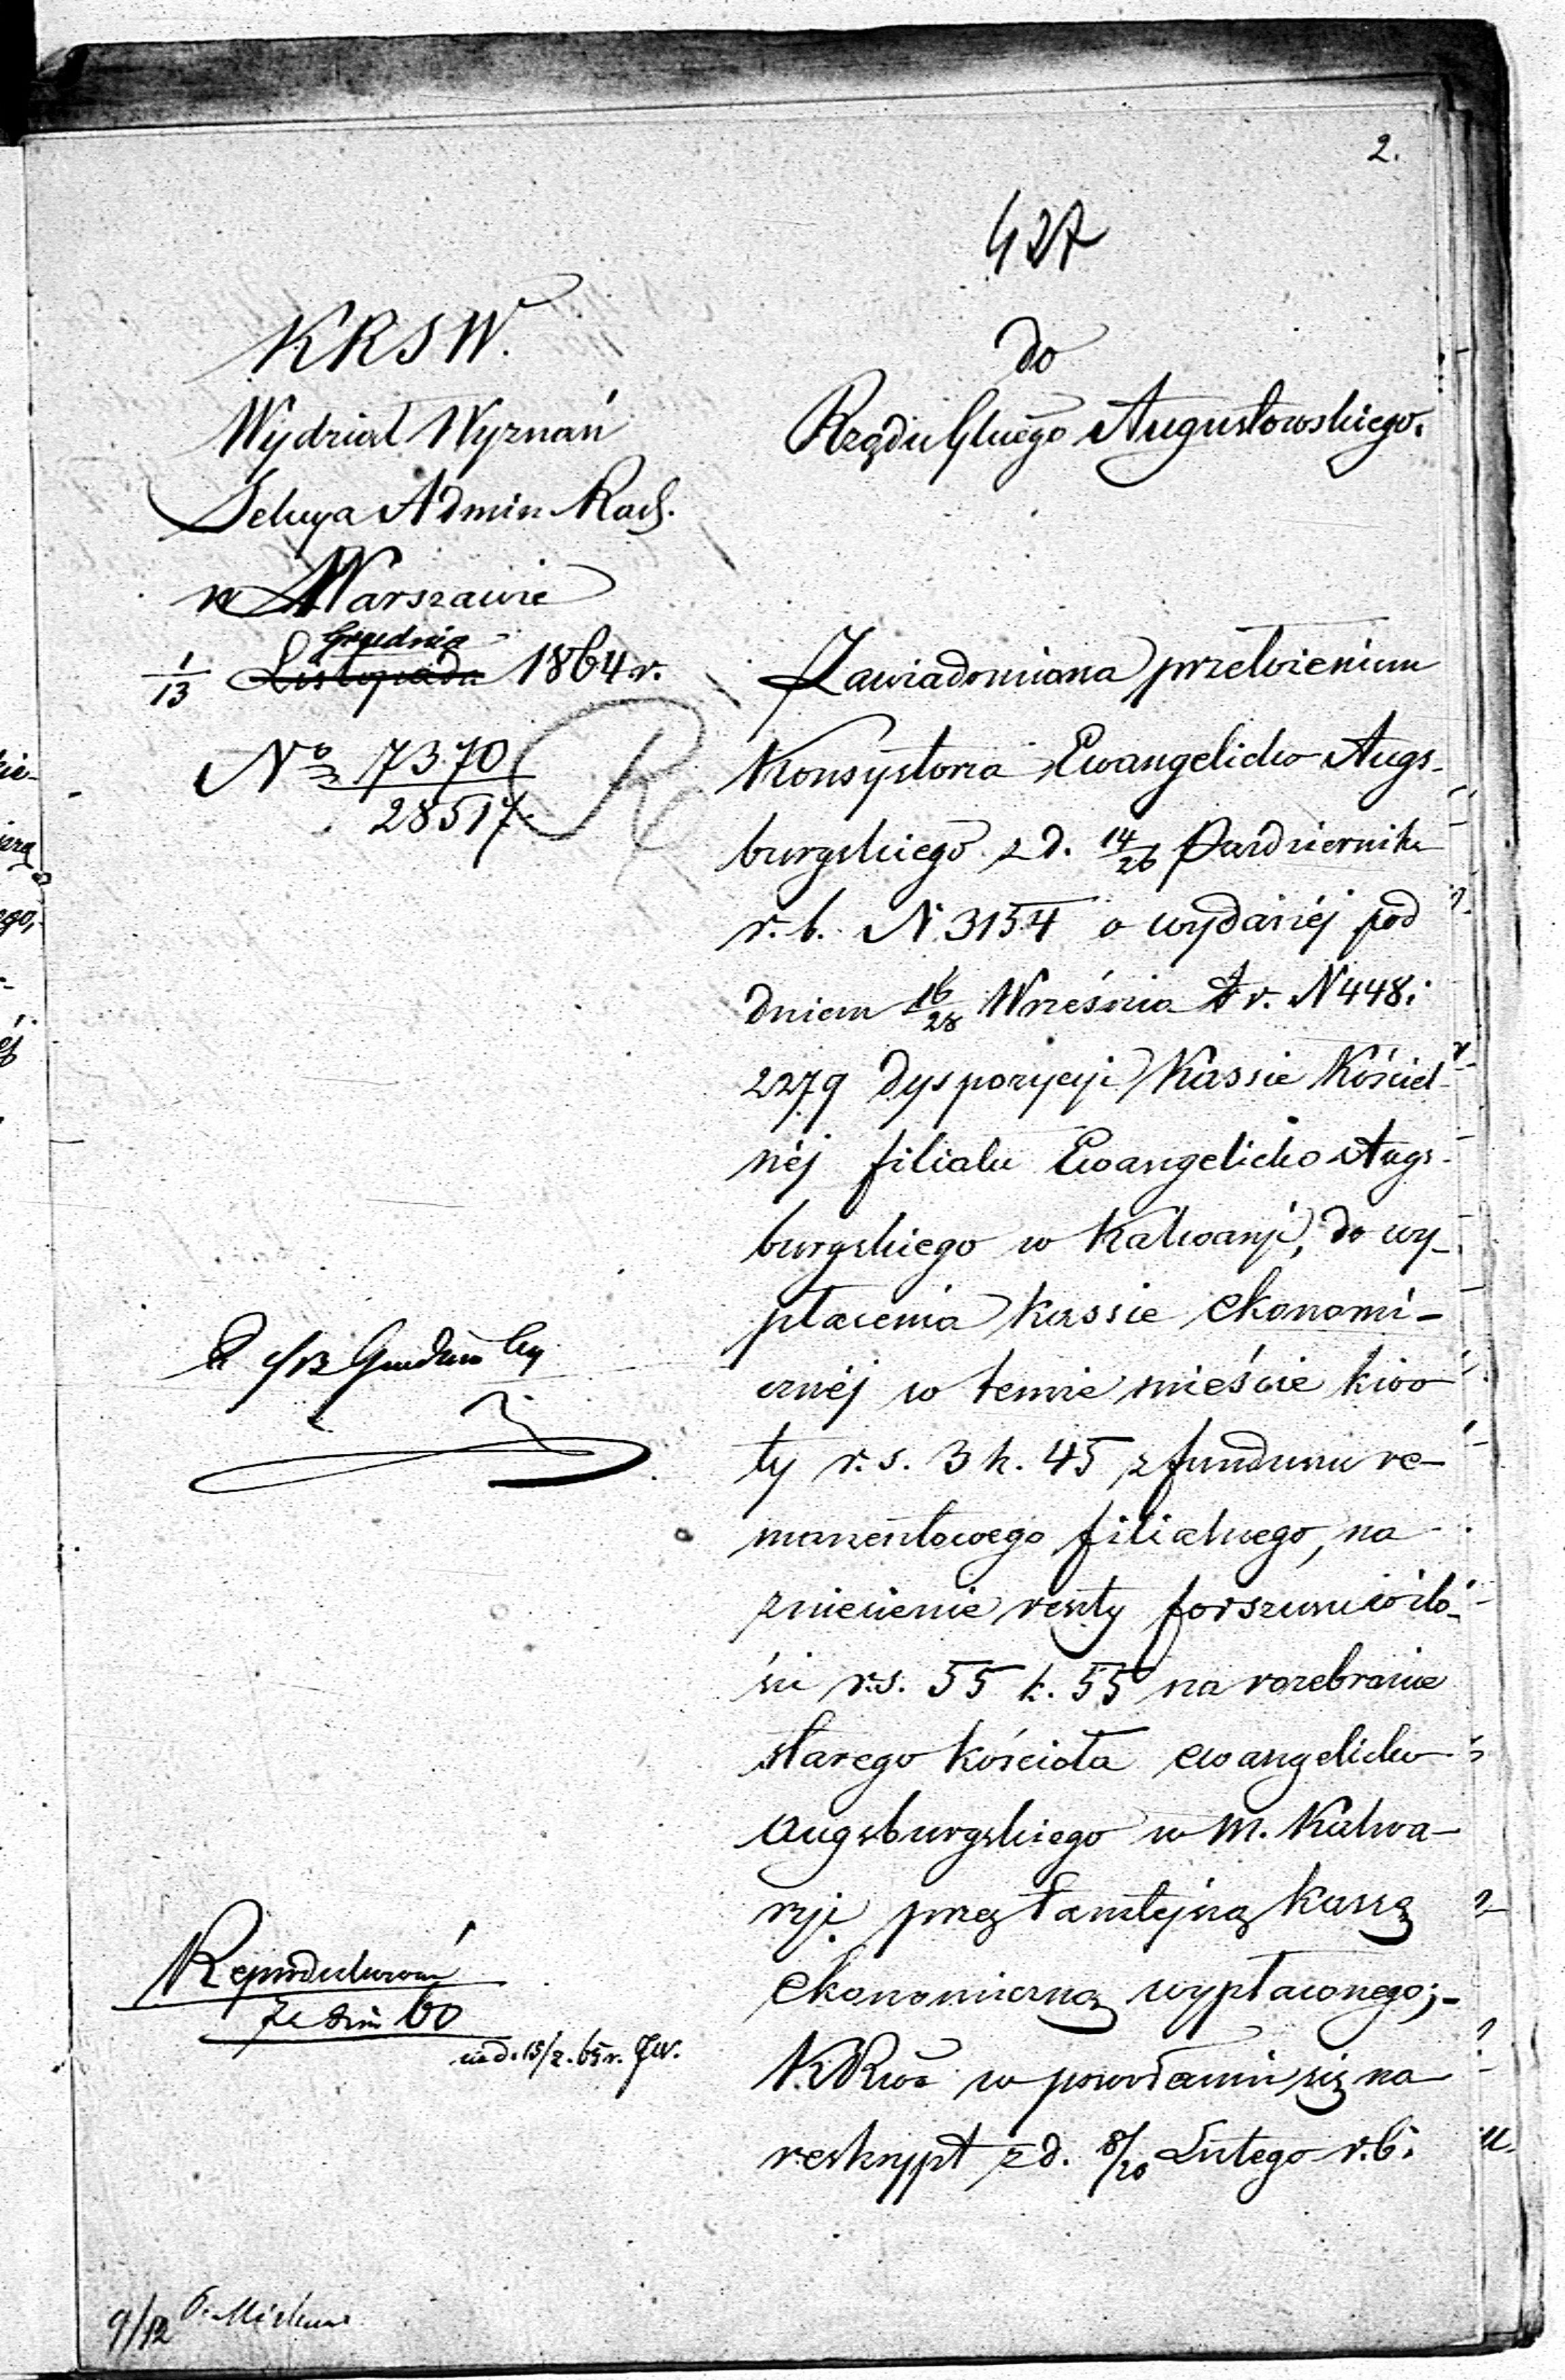 2.
427
KRSW.
Wydział Wyznań
Sekcya Admin Rach.
w Warszawie
Grudnia
1/13 Listopada 1864 r.
No 7370
28517.
do
Rządu Glnego Augustowskiego.
Zawiadomiona przełożeniem
Konsystorza Ewangelicko Augs-
burgskiego z d. 14/26 Październik
r. b. N. 3154 o wydanéj pod
dniem 16/28 Września t. r. N 448:
2279 dyspozycyi Kassie Kościel-
néj filiału Ewangelicko Augs-
burgskiego w Kalwaryi, do wy-
płacenia kassie ekonomi-
cznéj w temże mieście kwo
ty r. s. 3 k. 45 z funduszu re-
manentowego filialnego, na
zniesienie reszty forszusu w ilo-
ści r. s. 55 k. 55 na rozebranie
starego kościoła ewangelicko
Augsburgskiego w m. Kalwa-
ryi przez tamtejszą kassę
ekonomiczną wypłaconego;-
KRw w powołaniu się na
reskrypt z d. 8/20 Lutego r. b.
Reprodukować
za dni 60
9/12